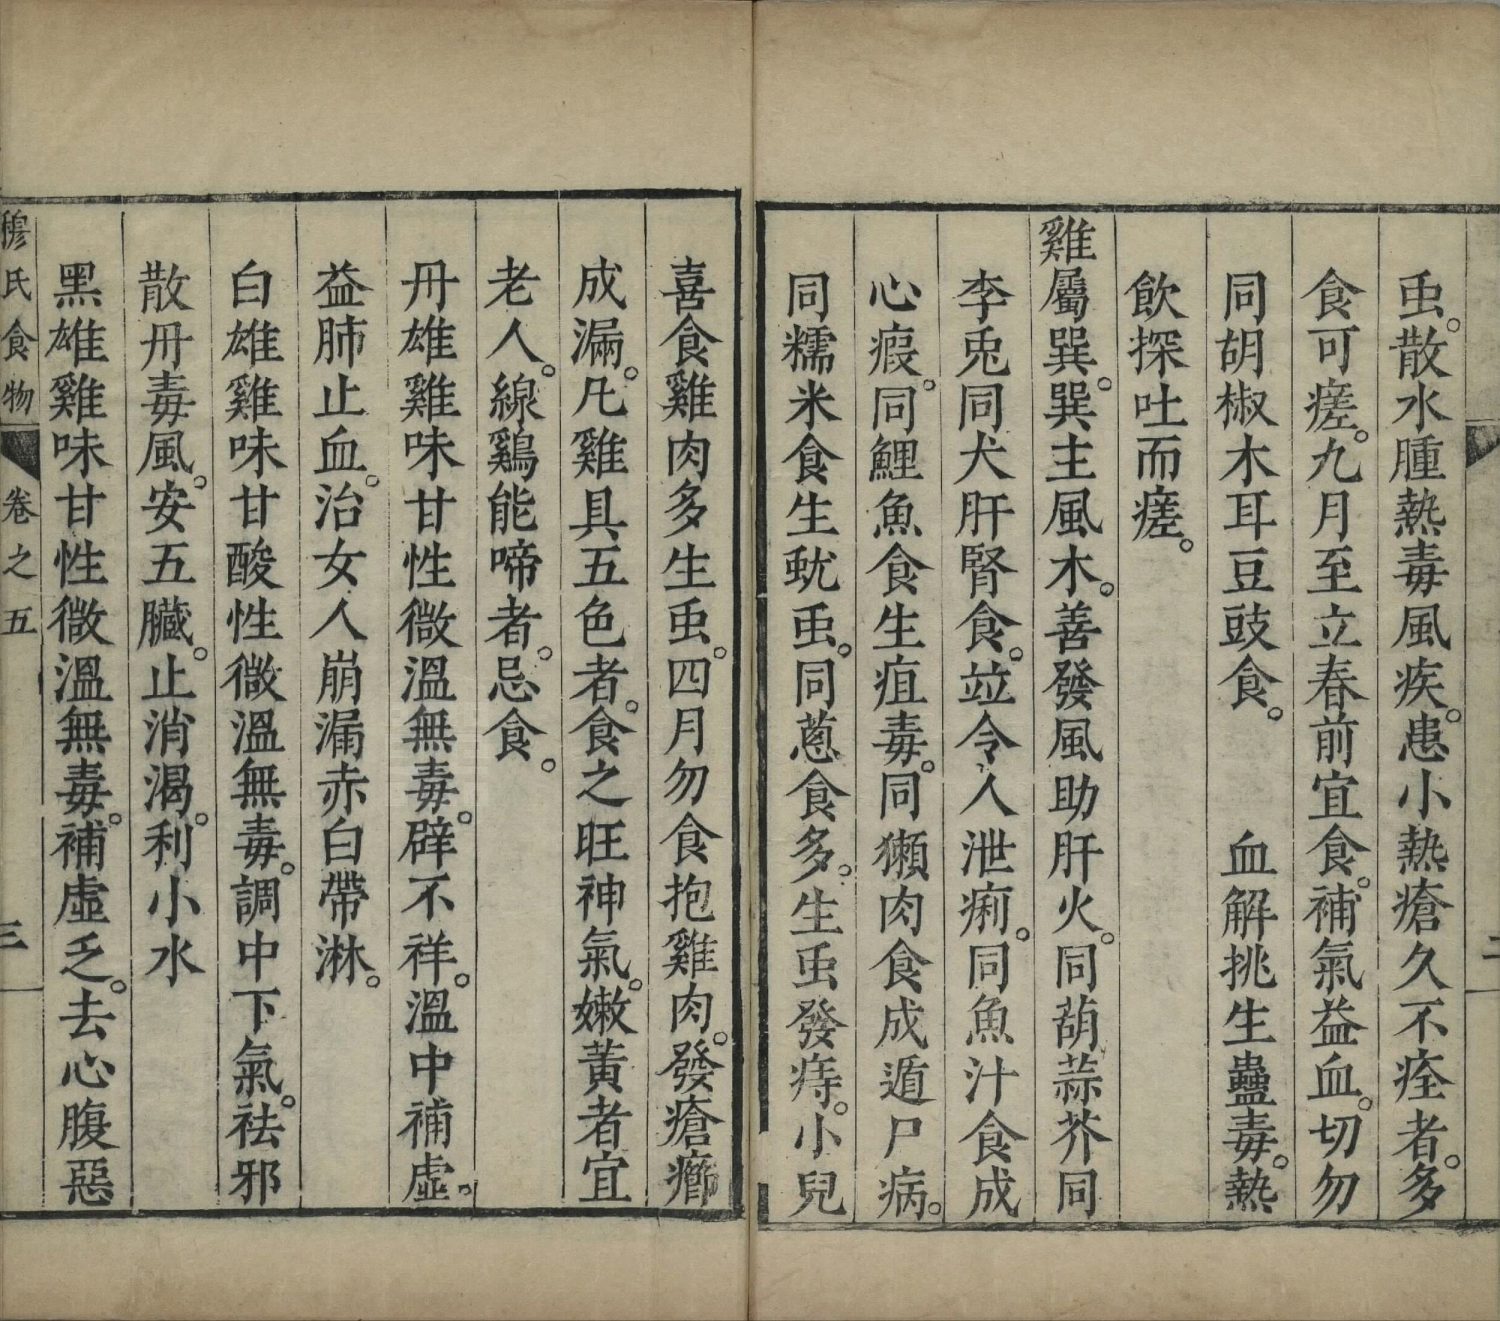 虫。散水腫熱毒風疾。患小熱瘡久不痊者。多
食可瘥。九月至立春前宜食。補氣益血。切勿
同胡椒木耳豆豉食。　血解挑生蠱毒。熱
飲探吐而瘥。
雞屬巽。巽主風木。善發風助肝火。同葫蒜芥同
李兎同犬肝腎食。竝令人泄痢。同魚汁食成
心瘕。同鯉魚食生疽毒。同獺肉食成遁尸病。
同糯米食生蚘虫。同蔥食多。生虫發痔。小兒
喜食雞肉多生虫。四月勿食抱雞肉。發瘡癤
成漏。凡雞具五色者。食之旺神氣。嫩黃者宜
老人。線鷄能啼者。忌食。
丹雄雞味甘性微溫無毒。辟不祥。溫中補虛。
益肺止血。治女人崩漏赤白帶淋。
白雄雞味甘酸性微溫無毒。調中下氣。祛邪
散丹毒風。安五臟。止消渴。利小水
黑雄雞味甘性微溫無毒。補虛乏。去心腹惡
穆氏食物
卷之五
三